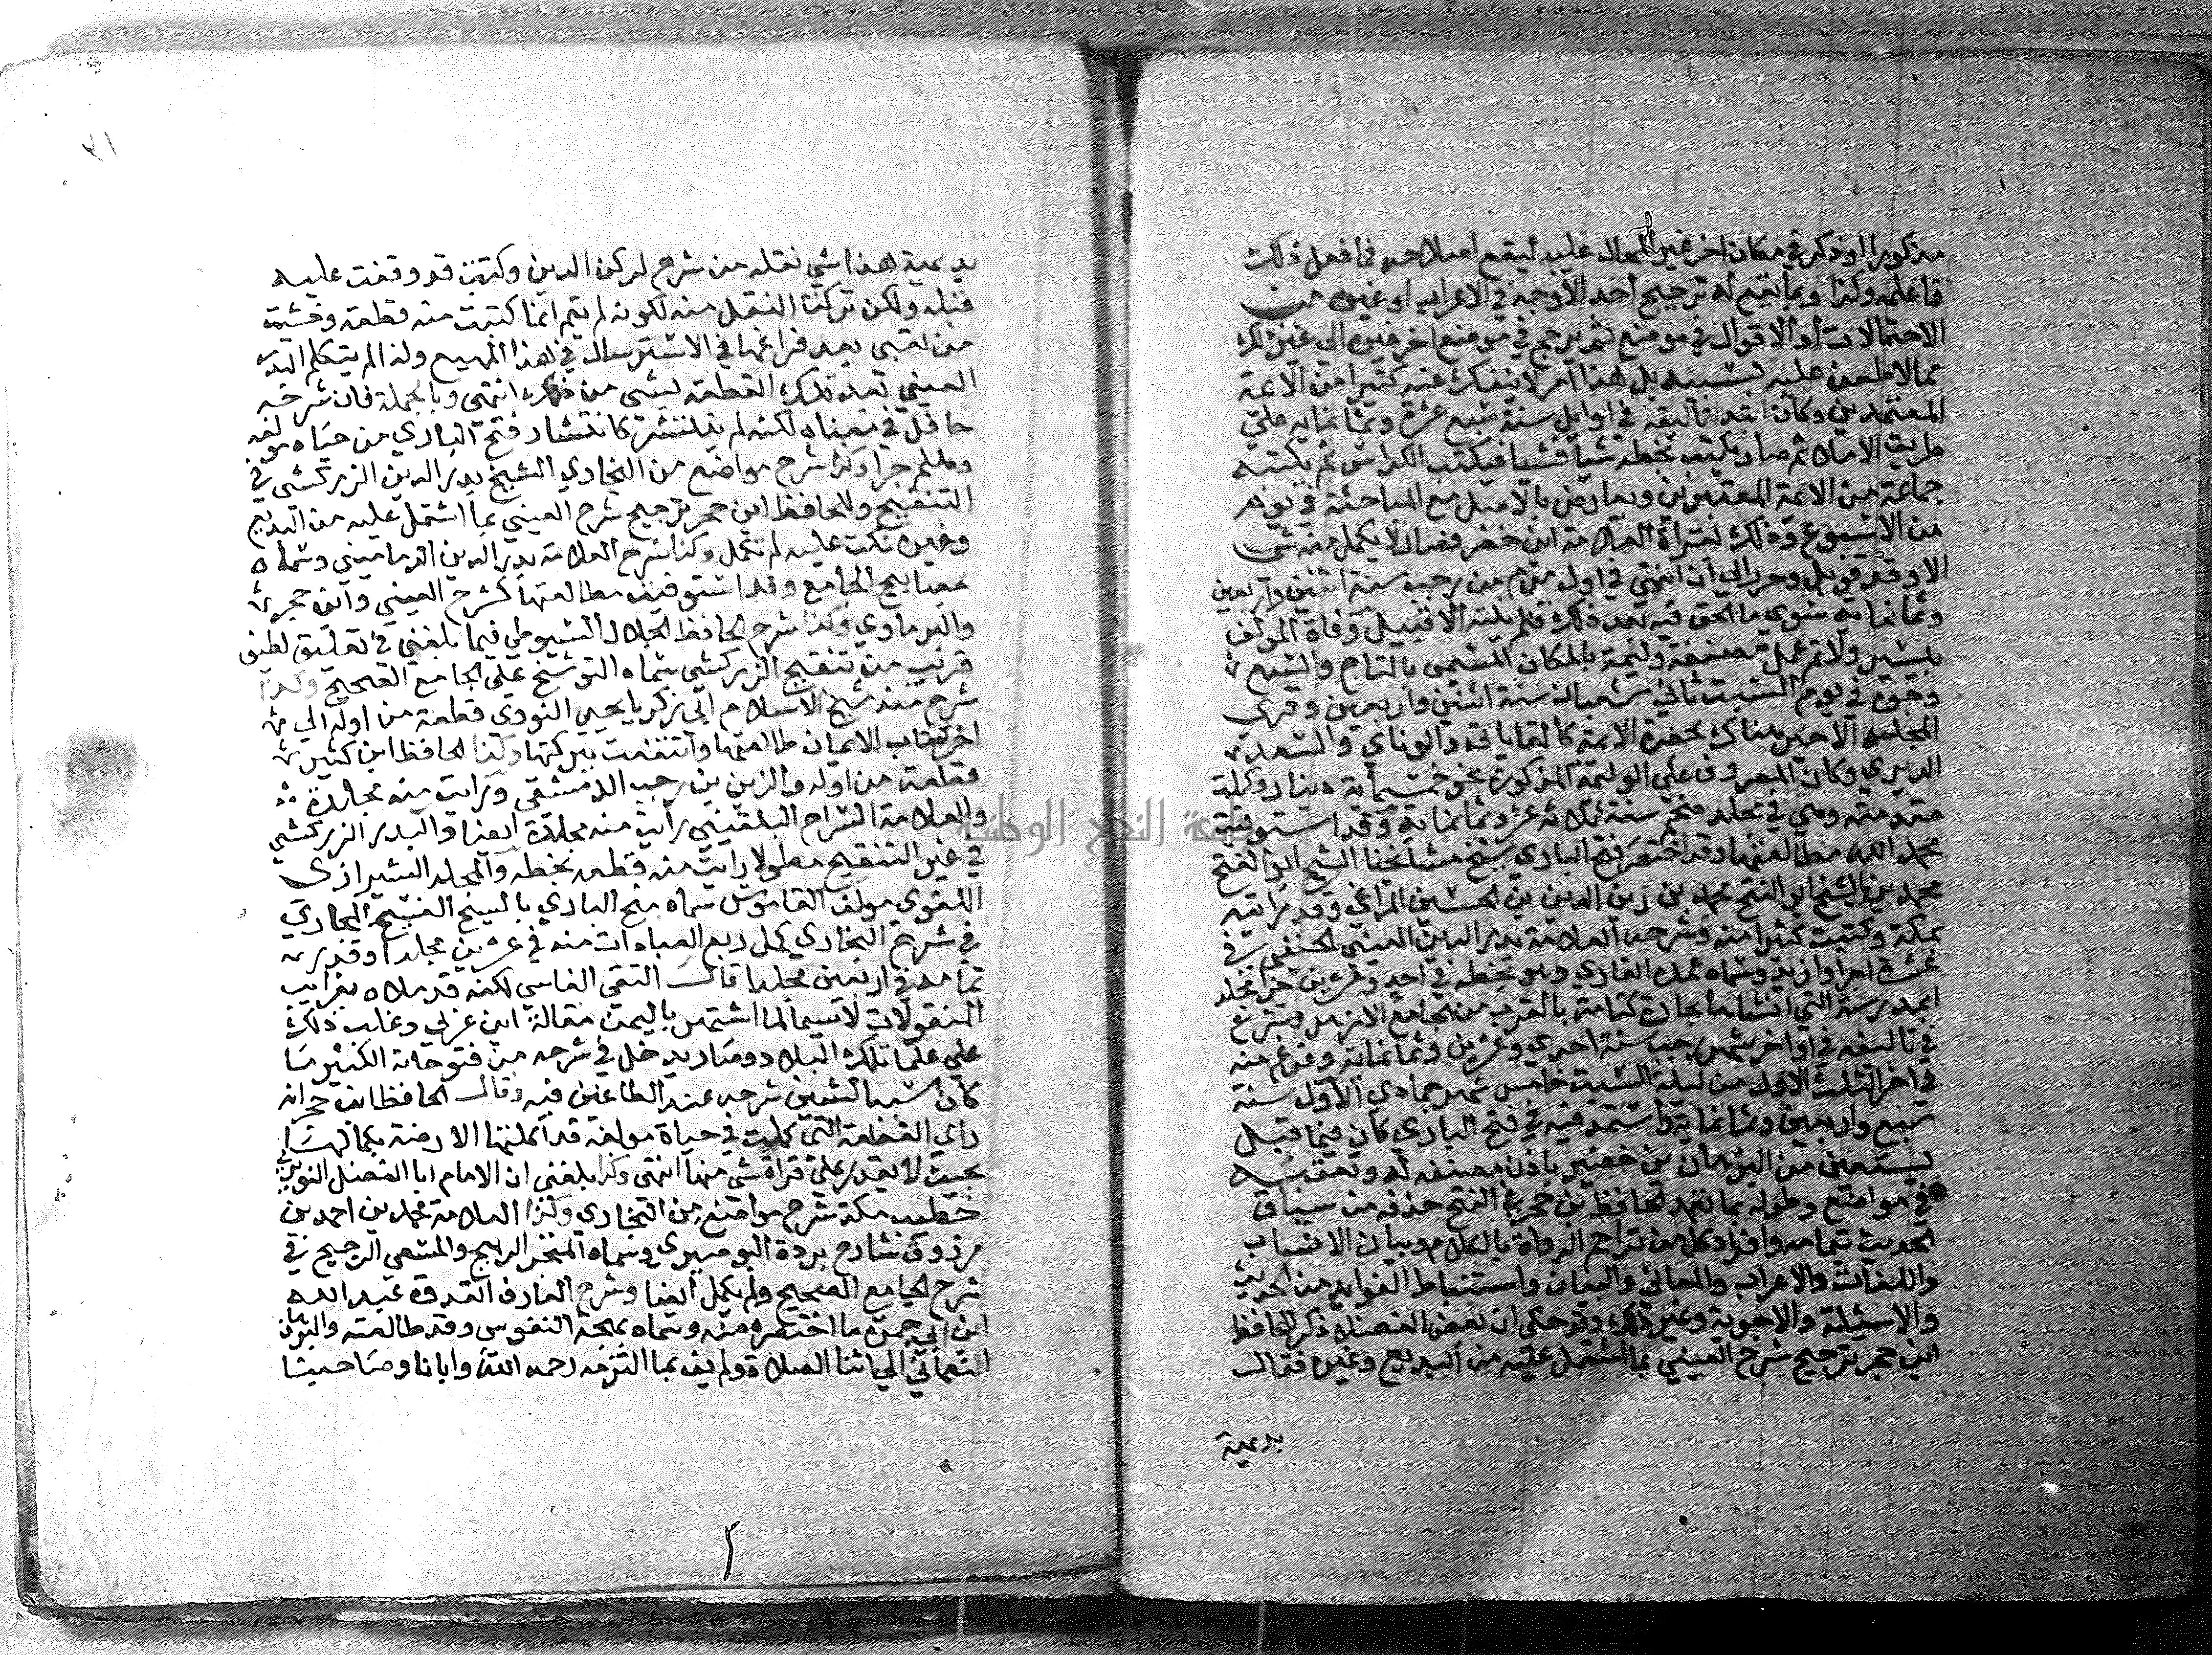 مذكورا او يذكر في مكان اخر غير المحال عليه ليقع اصلاحه فما فعل ذلك
فاعلمه وكذا ربما يقع له ترجيح أحد الأوجه في الاعراب او غيره من
الاحتمالات أو الاقوال في موضع ثم يرجح في موضع اخر غيره الي غير ذلك
مما لا طعن عليه بسببه بل هذا أمر لا ينفك عنه كثيرا من الائمة
المعتمدين وكان ابتدا تأليفه في اوايل سنة سبع عشرة وثمانمايه علي
طريق الاملا ثم صار يكتب بخطه شيا فشيا فيكتب الكراس ثم يكتبه
جماعة من الائمة المعتبرين ويعارض بالاصل مع المباحثة في يوم
من الاسبوع وذلك بقراة العلامة ابن خضر فصار لا يكمل منه شي
الا وقد قوبل وحرر الي أن انتهي في اول يوم من رجب سنة اثنين واربعين
وثمانمايه سوي ما الحق فيه بعد ذلك فلم ينته الا قبيل وفاة المولف
بيسير ولا تم عمل مصنفه وليمة بالمكان المسمي بالتاج والسبع
وجوه في يوم السبت ثاني شعبان سنة اثنين واربعين وقري
المجلس الاخير هناك بحضرة الايمة كالقاياتي والوناي والسعد
الديري وكان المصروف علي الوليمة المذكورة نحو خمسمأية دينار وكملت
مقدمته وهي في مجلد ضخم سنة ثلاثه عشر وثمانمايه وقد استوفيت
بحمد الله مطالعتها وقد اختصر فتح الباري شيخ مشايخنا الشيخ ابو الفتح
محمد بن الشيخ ابو الفتح محمد بن زين الدين بن الحسين المراغي وقد رايته
بمكة وكتبت كثيرا منه وشرحه العلامة بدر الدين العيني الحنفي في
عشرة اجزا وازيد وسماه عمدة القاري وهو بخطه في احد وعشرين جزا مجلد
بمدرسته التي انشاها بحارة كتامة بالقرب من الجامع الازهر وشرع
في تاليفه في اواخر شهر رجب سنة احدي وعشرين وثمانماية وفرغ منه
في اخر الثلث الاول من ليلة السبت خامس شهر جمادي الاول سنة
سبع واربعين وثمانماية واستمد فيه في فتح الباري كان فيما قيل
يستعين من البرهان بن خضير باذن مصنفه له وتعقبه
في مواضع وطوله بما تعمد الحافظ بن حجر في الفتح حذفه من سياق
الحديث بتمامه وافراد كل من تراجم الرواة بالكلام وبيان الانساب
واللغات والاعراب والمعاني والبيان واستنباط الفوايد من الحديث
والاسئيلة والاجوبة وغير ذلك وقد حكي ان بعض الفضلا ذكر للحافظ
ابن حجر ترجيح شرح العيني بما اشتمل عليه من البديع وغيره فقال
بديهية
بديهية هذا شي نقله من شرح لركن الدين وكنت قد وقفت عليه
قبله ولكن تركت النقل منه لكونه لم يتم انما كتبت منه قطعة وخشيت
من تعبي بعد فراغها في الاسترسال في هذا المهيع ولذا لم يتكلم البدر
العيني بعد تلك القطعة بشي من ذلك انتهي وبالجملة فان شرحه
حافل في معناه لكنه لم ينتشر كانتشار فتح الباري من حياه مولفه
وهلم جرا وكذا شرح مواضع من البخاري الشيخ بدر الدين الزركشي في
التنقيح وللحافظ ابن حجر ترجيح شرح العيني بما اشتمل عليه من البديع
وغيره نكت عليه لم تكمل وكذا شرح العلامة بدر الدين الدماميني وسماه
مصابيح الجامع وقد استوفيت مطالعتها كشرح العيني وابن حجر
والبرماوي وكذا شرح الحافظ الجلال السيوطي فيما بلغني في تعليق لطيف
قريب من تنقيح الزركشي سماه التوشيح علي الجامع الصحيح وكذا
شرح منه شيخ الاسلام ابي زكريا يحيي النووي قطعة من اوله الي
اخر كتاب الايمان طالعتها وانتفعت ببركتها وكذا الحافظ ابن كثير
قطعة من اوله والزين بن رجب الدمشقي ورايت منه مجلدة
والعلامة السراج البلقيني رايت منه مجلدة ايضا والبدر الزركشي
في غير التنقيح مطولا رايت منه قطعه بخطه والمجد الشيرازي
اللغوي مولف القاموس سماه منح الباري بالسيح الفسيح المجاري
في شرح البخاري كمل ربع العبادات منه في عشرين مجلدا وقدر
تمامه في اربعين مجلدا قال التقي الفاسي لكنه قد ملاه بغرايب
المنقولات لا سيما لما اشتهر باليمن مقالة ابن عربي وغلب ذلك
علي علما تلك البلاد وصار يدخل في شرحه من فتوحاته الكثير ما
كان سببا لشين شرحه عند الطاعنين فيه وقال الحافظ ابن حجر انه
راي القطعة التي كملت في حياة مولفه قد اكلتها الارضة بكمالها
بحيث لا يقدر علي قراة شي منها انتهي وكذا بلغني ان الامام ابا الفضل النويري
خطيب مكة شرح مواضع من البخاري وكذا العلامة محمد بن احمد بن
مرزوق شارح بردة البوصيري وسماه المتجر الربيح والمسعي الرجيح في
شرح الجامع الصحيح ولم يكمل ايضا وشرح العارف القدوة عبد الله
ابن ابي جمرة ما اختصره منه وسماه بهجة النفوس وقد طالعته والبرهان
النعماني الي اثنا الصلاة ولم يف بما التزمه رحمه الله وايانا وصاحبنا